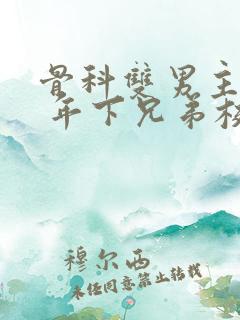 骨科双男主
年下兄弟校
穆尔西
未经同意禁止转载